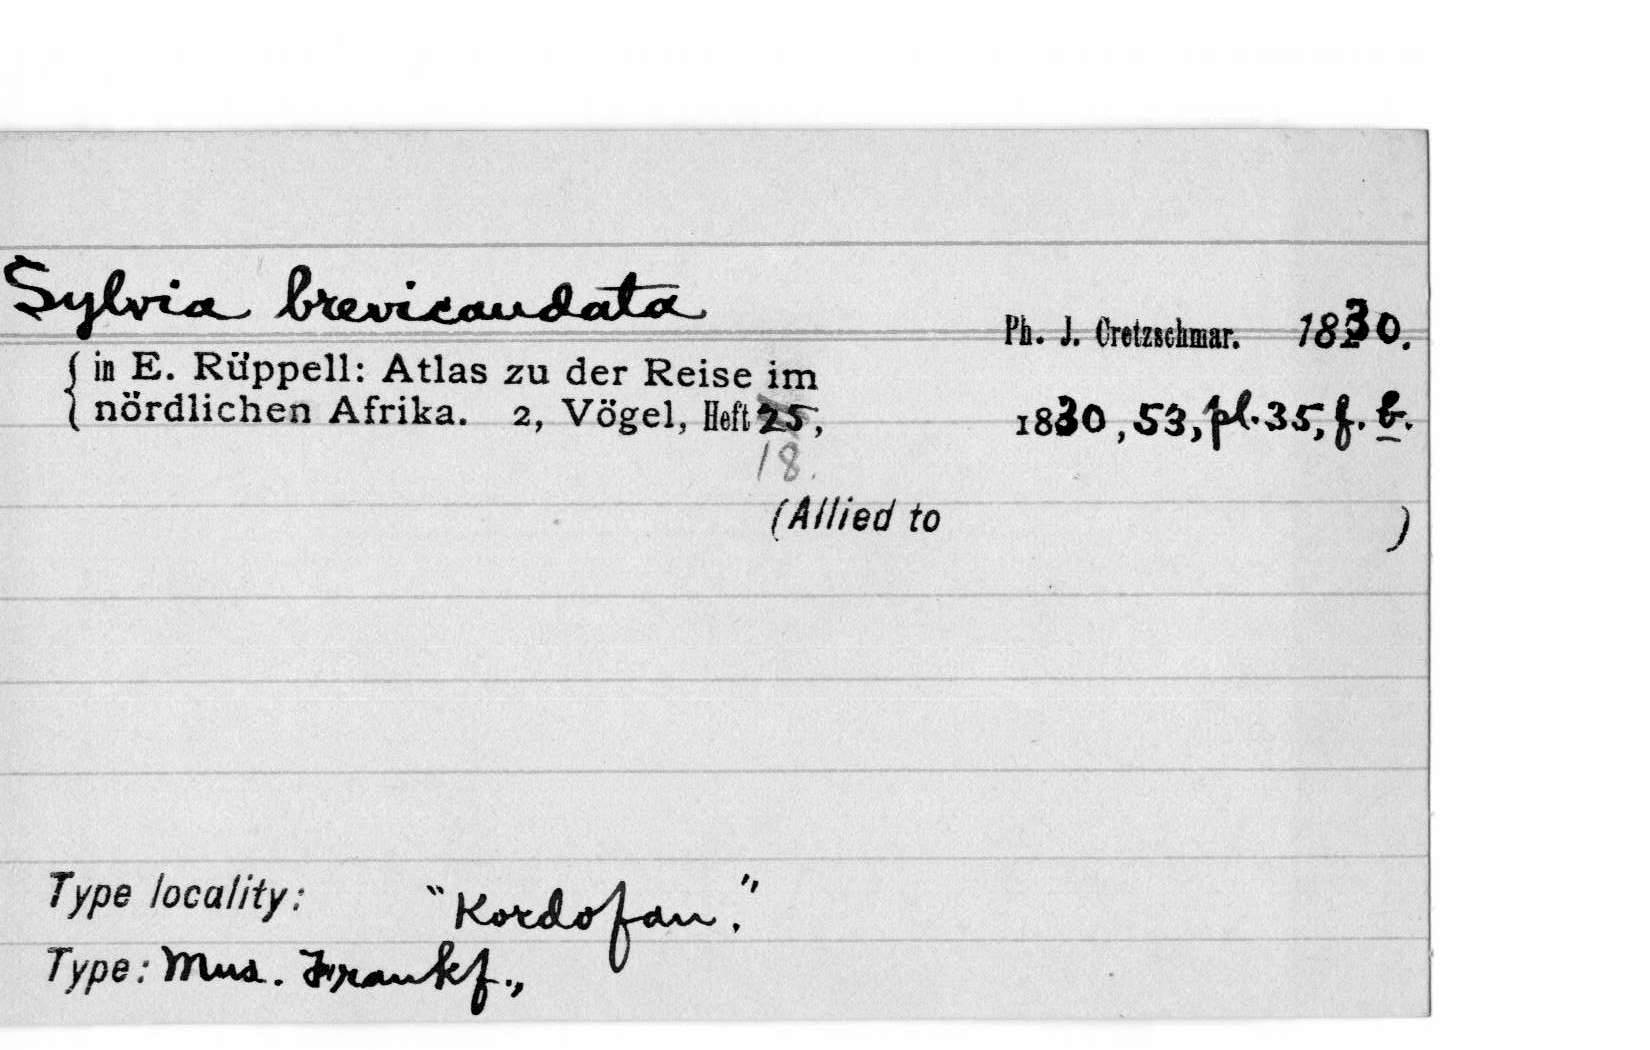 Sylvia brevicaudata
Ph. J. Cretzschmar. 1830.
{ in E. Rüppell: Atlas zu der Reise im
nördlichen Afrika. 2, Vögel, Heft 25, 1830, 53, pl. 35, f. b.
18.
(Allied to )
Type locality: "Kordofan."
Type: Mus. Frankf.,